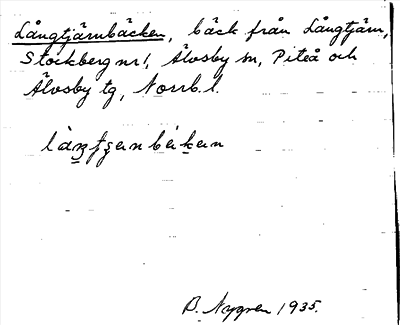 Långtjärnbäcken, bäck från Långtjärn,
Stockberg nr 1, Älvsby sn, Piteå och
Älvsby tg, Norrb. l.
B. Nygren 1935.